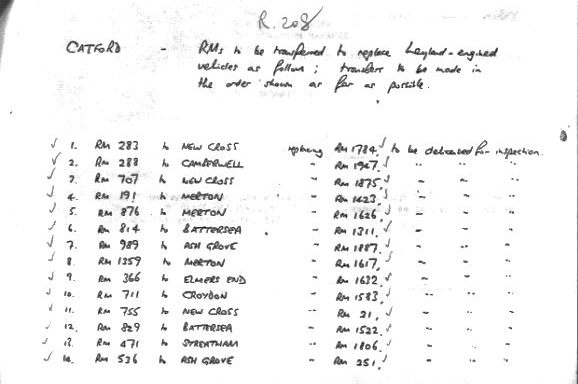 R.208
CATFORD - RMs to be transferred to replace Leyland-engined
vehicles as follows; transfers to be made in
the order shown as far as possible.
✓ 1. RM 283 to NEW CROSS replacing RM 1784,✓ to be delicensed for inspection.
✓ 2. RM 288 to CAMBERWELL " RM 1947,✓ " " "
✓ 3. RM 707 to NEW CROSS " RM 1875,✓ " " "
✓ 4. RM 191 to MERTON " RM 1423,✓ " " "
✓ 5. RM 876 to MERTON " RM 1626,✓ " " "
✓ 6. RM 814 to BATTERSEA " RM 1311,✓ " " "
✓ 7. RM 989 to ASH GROVE " RM 1887,✓ " " "
✓ 8. RM 1359 to MERTON " RM 1617,✓ " " "
✓ 9. RM 366 to ELMERS END " RM 1632,✓ " " "
✓ 10. RM 711 to CROYDON " RM 1583,✓ " " "
✓ 11. RM 755 to NEW CROSS " RM 21,✓ " " "
✓ 12. RM 829 to BATTERSEA " RM 1522,✓ " " "
✓ 13. RM 471 to STREATHAM " RM 1806,✓ " " "
✓ 14. RM 536 to ASH GROVE " RM 251,✓ " " "